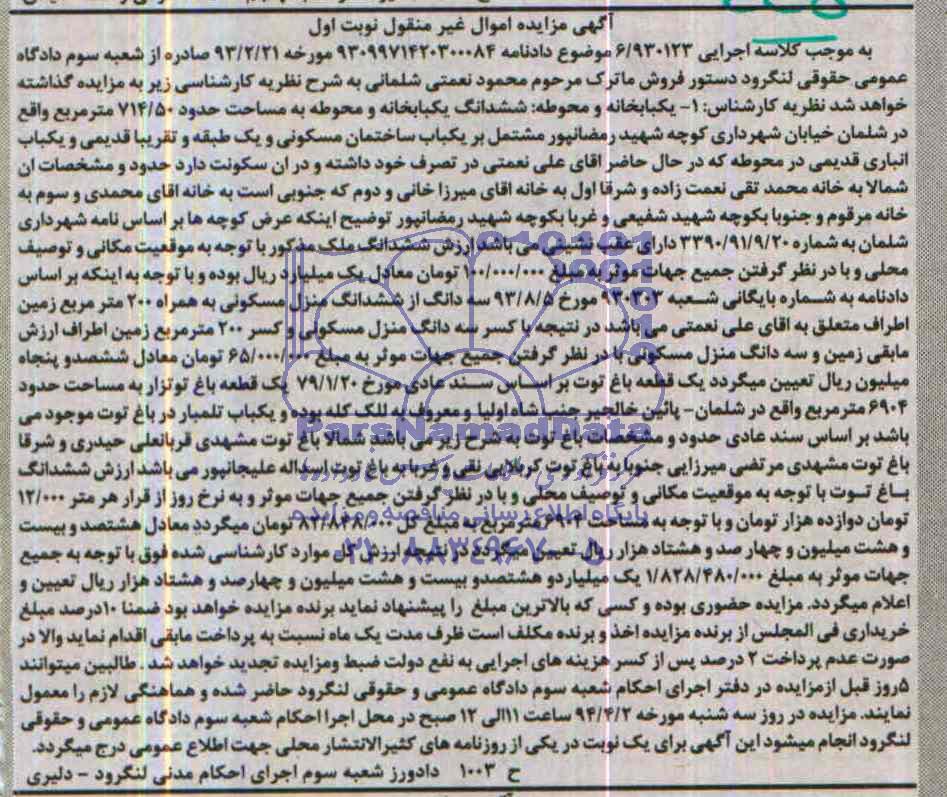 آگهی مزایده اموال غیر منقول نوبت اول
به موجب کلاسه اجرایی ۶/۹۳۰۱۲۳ موضوع دادنامه ۹۳۰۹۹۷۱۴۲۰۳۰۰۰۸۴ مورخه ۹۳/۲/۲۱ صادره از شعبه سوم دادگاه
عمومی حقوقی لنگرود دستور فروش ماترک مرحوم محمود نعمتی شلمانی به شرح نظریه کارشناسی زیر به مزایده گذاشته
خواهد شد نظریه کارشناس: ۱- یکبابخانه و محوطه: ششدانگ یکبابخانه و محوطه به مساحت حدود ۷۱۴/۵۰ مترمربع واقع
در شلمان خیابان شهرداری کوچه شهید رمضانپور مشتمل بر یکباب ساختمان مسکونی و یک طبقه و تقریبا قدیمی و یکباب
انباری قدیمی در محوطه که در حال حاضر اقای علی نعمتی در تصرف خود داشته و در ان سکونت دارد حدود و مشخصات ان
شمالا به خانه محمد تقی نعمت زاده و شرقا اول به خانه اقای میرزا خانی و دوم که جنوبی است به خانه اقای محمدی و سوم به
خانه مرقوم و جنوبا بکوچه شهید شفیعی و غربا بکوچه شهید رمضانپور توضیح اینکه عرض کوچه ها بر اساس نامه شهرداری
شلمان به شماره ۳۳۹۰/۹۱/۹/۲۰ دارای عقب نشینی می باشد ارزش ششدانگ ملک مذکور با توجه به موقعیت مکانی و توصیف
محلی و با در نظر گرفتن جمیع جهات موثر به مبلغ ۱۰۰/۰۰۰/۰۰۰ تومان معادل یک میلیارد ریال بوده و با توجه به اینکه بر اساس
دادنامه به شماره بایگانی شعبه ۹۳۰۳۰۳ مورخ ۹۳/۸/۵ سه دانگ از ششدانگ منزل مسکونی به همراه ۲۰۰ متر مربع زمین
اطراف متعلق به اقای علی نعمتی می باشد در نتیجه با کسر سه دانگ منزل مسکونی و کسر ۲۰۰ مترمربع زمین اطراف ارزش
مابقی زمین و سه دانگ منزل مسکونی با در نظر گرفتن جمیع جهات موثر به مبلغ ۶۵/۰۰۰/۰۰۰ تومان معادل ششصدو پنجاه
میلیون ریال تعیین میگردد یک قطعه باغ توت بر اساس سند عادی مورخ ۷۹/۱/۲۰ یک قطعه باغ توتزار به مساحت حدود
۶۹۰۴ مترمربع واقع در شلمان- پائین خالجیر جنب شاه اولیا و معروف به للک کله بوده و یکباب تلمبار در باغ توت موجود می
باشد بر اساس سند عادی حدود و مشخصات باغ توت به شرح زیر می باشد شمالا باغ توت مشهدی قربانعلی حیدری و شرقا
باغ توت مشهدی مرتضی میرزایی جنوبا به باغ توت کربلایی نقی و غربا به باغ توت اسداله علیجانپور می باشد ارزش ششدانگ
باغ توت با توجه به موقعیت مکانی و توصیف محلی و با در نظر گرفتن جمیع جهات موثر و به نرخ روز از قرار هر متر ۱۲/۰۰۰
تومان دوازده هزار تومان و با توجه به مساحت ۶۹۰۴ مترمربع به مبلغ کل ۸۲/۸۴۸/۰۰۰ تومان میگردد معادل هشتصد و بیست
و هشت میلیون و چهار صد و هشتاد هزار ریال تعیین میگردد در نتیجه ارزش کل موارد کارشناسی شده فوق با توجه به جمیع
جهات موثر به مبلغ ۱/۸۲۸/۴۸۰/۰۰۰ یک میلیاردو هشتصدو بیست و هشت میلیون و چهارصد و هشتاد هزار ریال تعیین و
اعلام میگردد. مزایده حضوری بوده و کسی که بالاترین مبلغ را پیشنهاد نماید برنده مزایده خواهد بود ضمنا ۱۰درصد مبلغ
خریداری فی المجلس از برنده مزایده اخذ و برنده مکلف است ظرف مدت یک ماه نسبت به پرداخت مابقی اقدام نماید والا در
صورت عدم پرداخت ۲ درصد پس از کسر هزینه های اجرایی به نفع دولت ضبط ومزایده تجدید خواهد شد . طالبین میتوانند
۵روز قبل ازمزایده در دفتر اجرای احکام شعبه سوم دادگاه عمومی و حقوقی لنگرود حاضر شده و هماهنگی لازم را معمول
نمایند. مزایده در روز سه شنبه مورخه ۹۴/۴/۲ ساعت ۱۱الی ۱۲ صبح در محل اجرا احکام شعبه سوم دادگاه عمومی و حقوقی
لنگرود انجام میشود این آگهی برای یک نوبت در یکی از روزنامه های کثیرالانتشار محلی جهت اطلاع عمومی درج میگردد.
ح ۱۰۰۳ دادورز شعبه سوم اجرای احکام مدنی لنگرود - دلیری
ParsNamadData
پایگاه اطلاع رسانی مناقصه و مزایده
۰۲۱-۸۸۳۴۹۶۷۰-۵